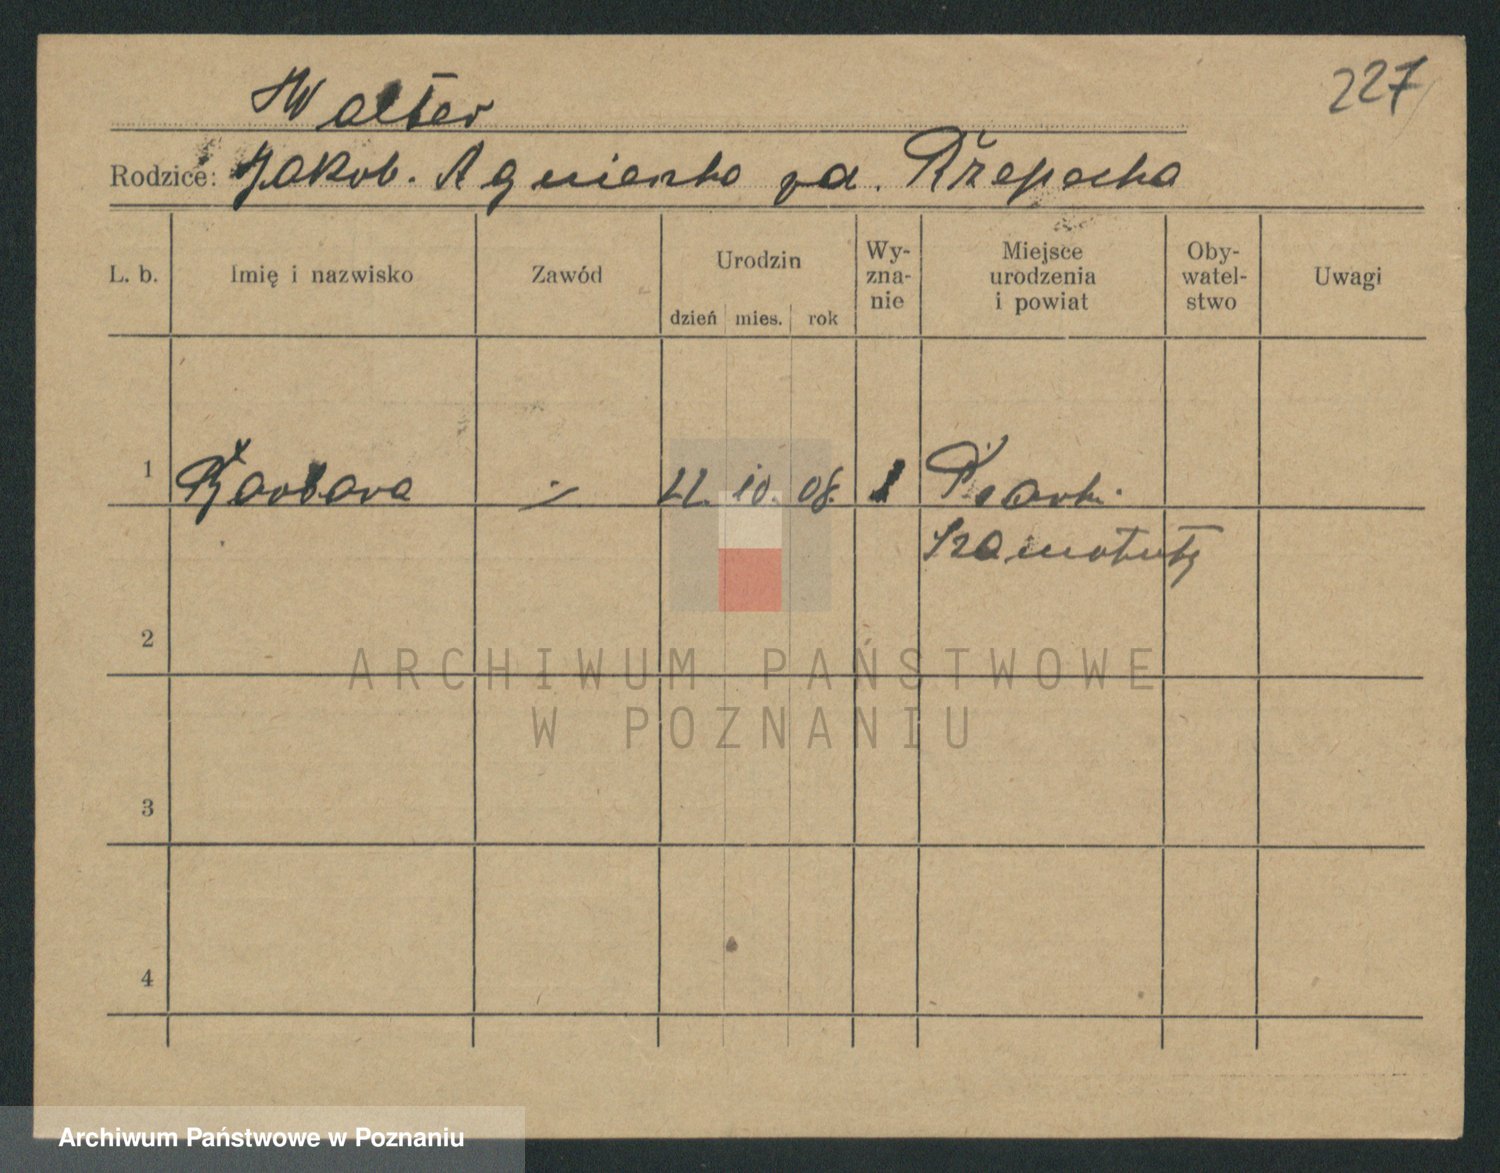 227
Walter
Rodzice: Jakob. Agnieszka zd. Rzepecka
L. b. Imię i nazwisko Zawód Urodzin dzień mies. rok Wy-zna-nie Miejsce urodzenia i powiat Oby-watel-stwo Uwagi
1 Barbara 22. 10. 08. Psarki
Szamotuły
2
ARCHIWUM PAŃSTWOWE
W POZNANIU
3
4
Archiwum Państwowe w Poznaniu